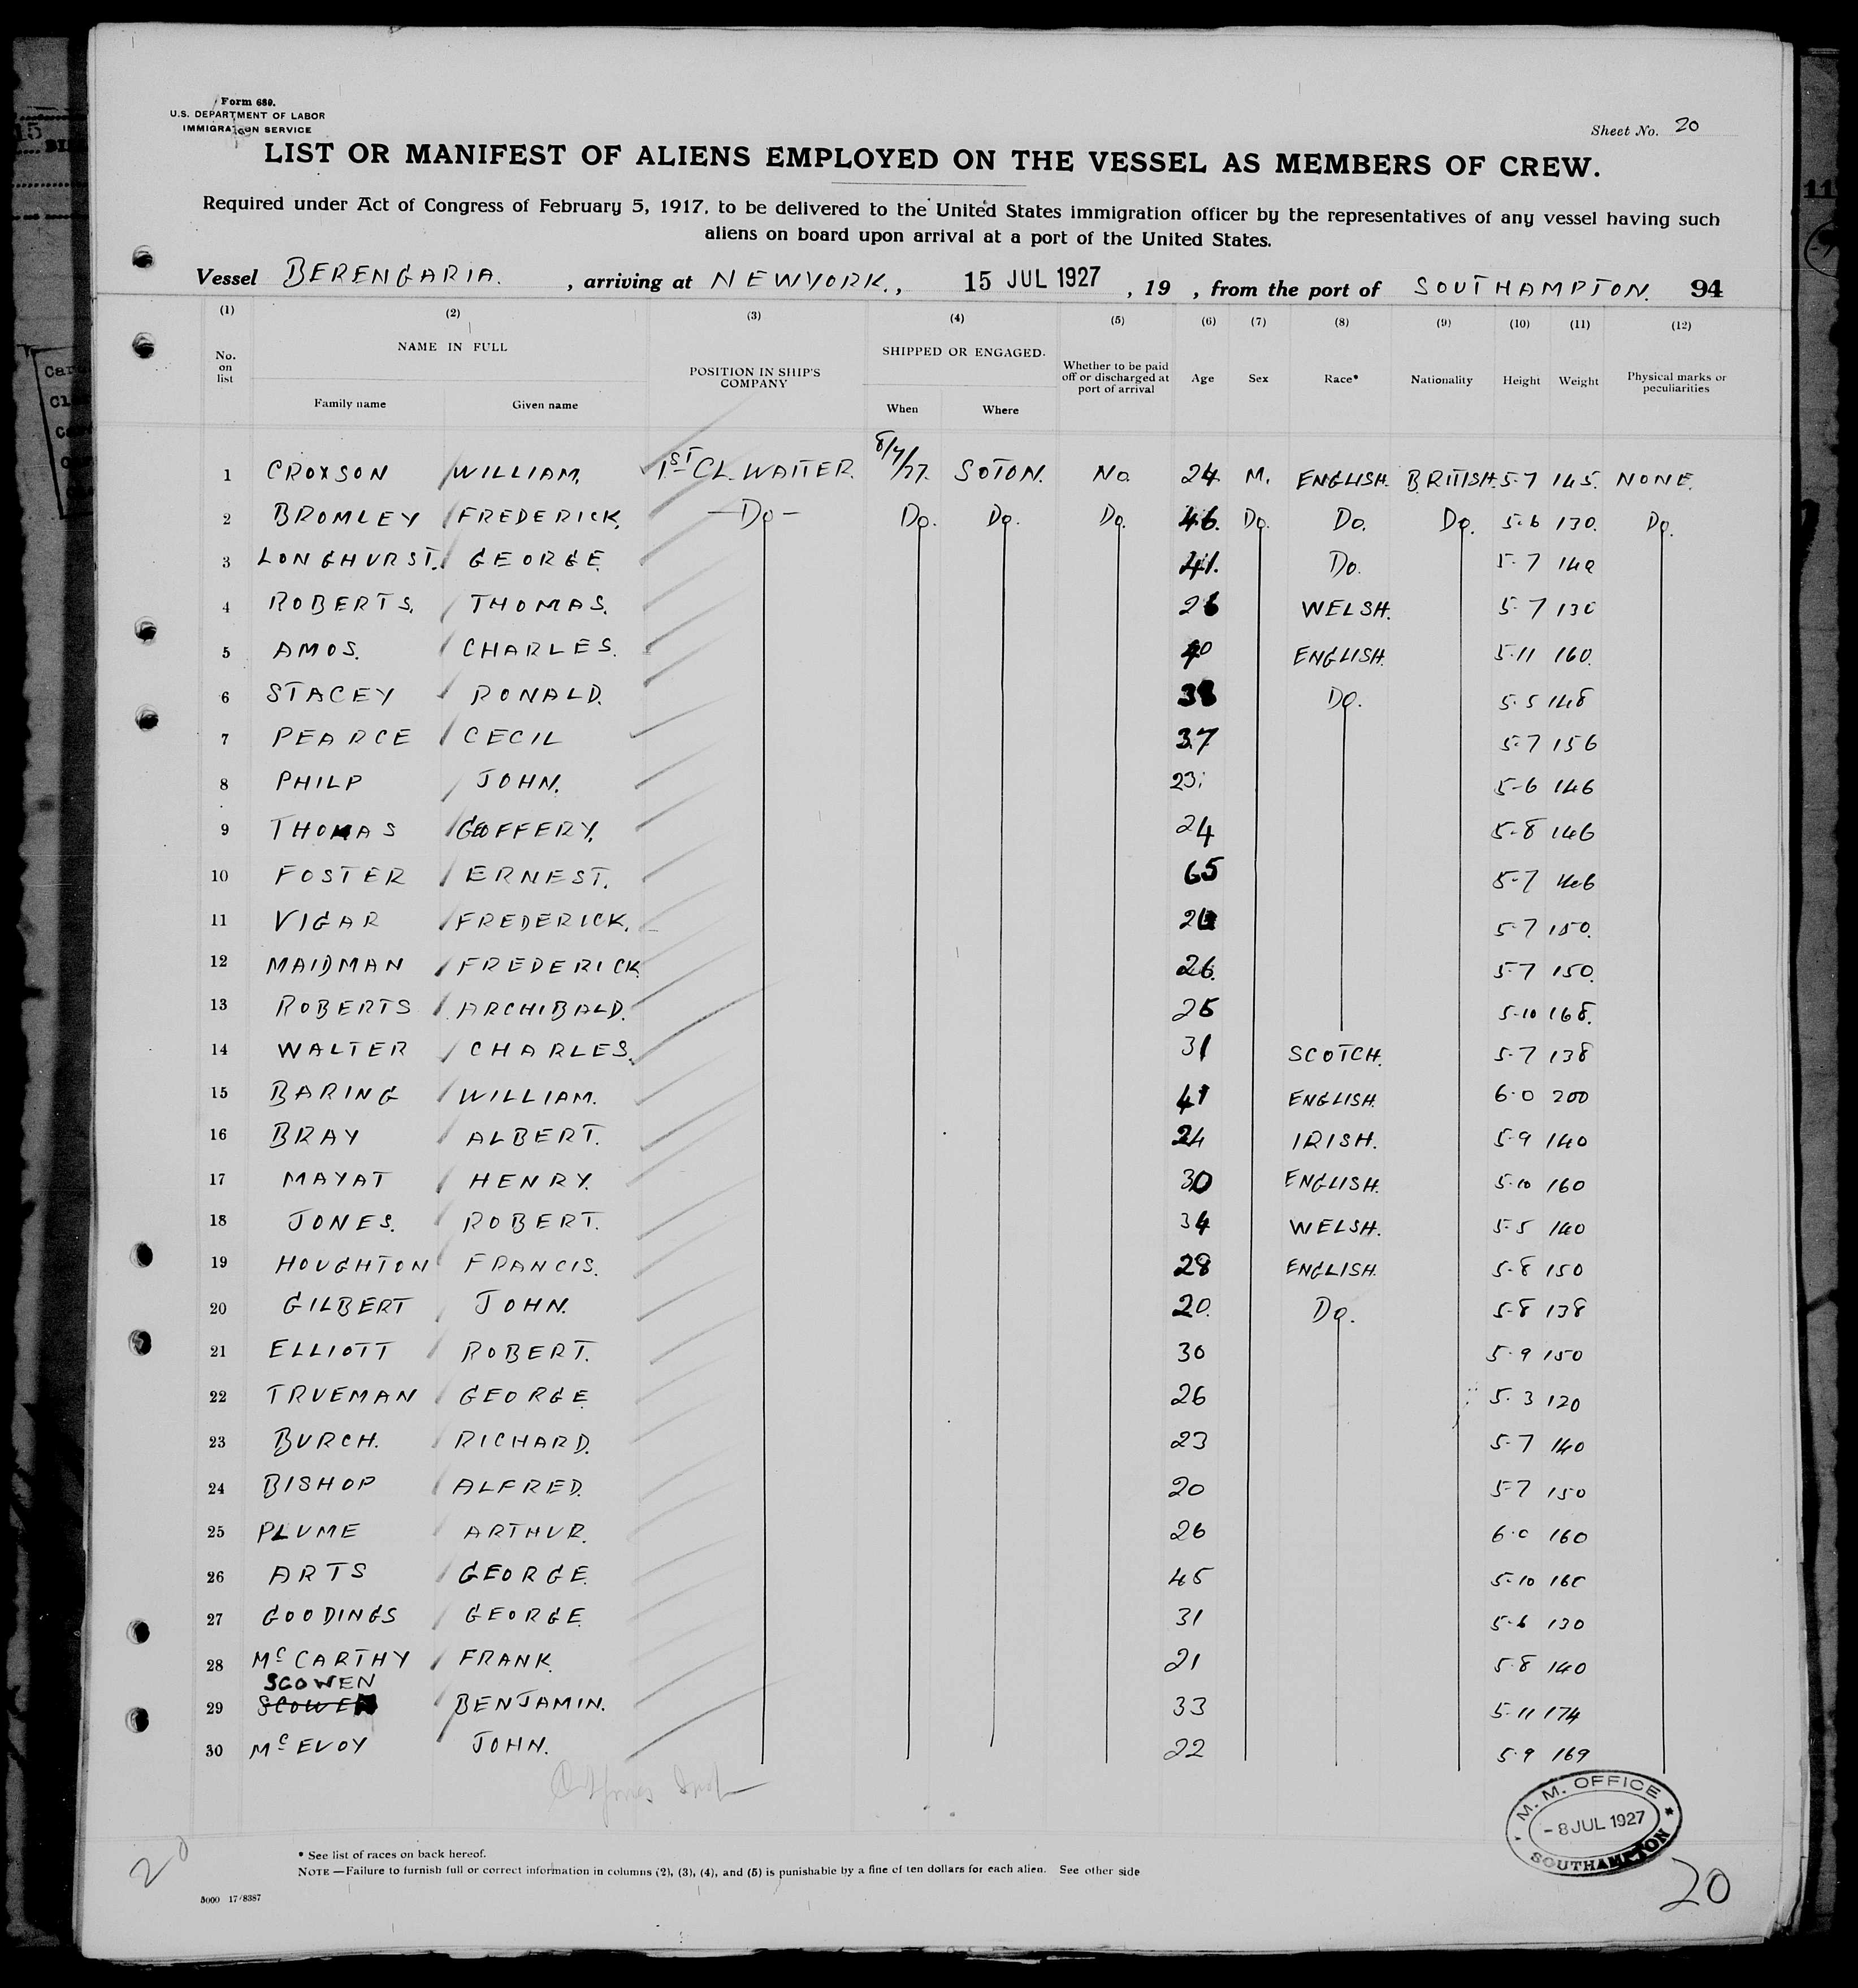 Form 689.
U.S. DEPARTMENT OF LABOR
IMMIGRATION SERVICE
Sheet No. 20
LIST OR MANIFEST OF ALIENS EMPLOYED ON THE VESSEL AS MEMBERS OF CREW.
Required under Act of Congress of February 5, 1917, to be delivered to the United States immigration officer by the representatives of any vessel having such
aliens on board upon arrival at a port of the United States.
Vessel BERENGARIA. , arriving at NEWYORK., 15 JUL 1927 , 19 , from the port of SOUTHAMPTON. 94
(1) (2) (3) (4) (5) (6) (7) (8) (9) (10) (11) (12)
No. on list NAME IN FULL Family name Given name POSITION IN SHIP'S COMPANY SHIPPED OR ENGAGED. When Where Whether to be paid off or discharged at port of arrival Age Sex Race* Nationality Height Weight Physical marks or peculiarities
1 CROXSON WILLIAM. 1ST CL. WAITER. 8/7/27. SOTON. No. 24 M. ENGLISH. BRITISH. 5-7 145. NONE.
2 BROMLEY FREDERICK. -Do- Do. Do. Do. 46. Do. Do. Do. 5-6 130. Do.
3 LONGHURST. GEORGE. 41. Do. 5-7 140
4 ROBERTS. THOMAS. 26 WELSH. 5-7 130
5 AMOS. CHARLES. 40 ENGLISH. 5-11 160.
6 STACEY RONALD. 38 Do. 5-5 148
7 PEARCE CECIL 37 5-7 156
8 PHILP JOHN. 23. 5-6 146
9 THOMAS GEOFFERY. 24 5-8 146
10 FOSTER ERNEST. 65 5-7 146
11 VIGAR FREDERICK. 5-7 150.
12 MAIDMAN FREDERICK 26. 5-7 150.
13 ROBERTS ARCHIBALD. 25 5-10 168.
14 WALTER CHARLES. 31 SCOTCH. 5-7 138
15 BARING WILLIAM. 41 ENGLISH. 6-0 200
16 BRAY ALBERT. 24 IRISH. 5-9 140
17 MAYAT HENRY. 30 ENGLISH. 5-10 160
18 JONES. ROBERT. 34 WELSH. 5-5 140
19 HOUGHTON FRANCIS. 28 ENGLISH. 5-8 150
20 GILBERT JOHN. 20. Do. 5-8 138
21 ELLIOTT ROBERT. 30 5-9 150
22 TRUEMAN GEORGE. 26 5-3 120
23 BURCH. RICHARD. 23 5-7 140
24 BISHOP ALFRED. 20 5-7 150
25 PLUME ARTHUR. 26 6-0 160
26 ARTS GEORGE. 45 5-10 160
27 GOODINGS GEORGE. 31 5-6 130
28 McCARTHY FRANK. 21 5-8 140
SCOWEN
29 SCOWEN BENJAMIN. 33 5-11 174
30 McEVOY JOHN. 22 5-9 169
M. M. OFFICE
- 8 JUL 1927
SOUTHAMPTON
* See list of races on back hereof.
NOTE.—Failure to furnish full or correct information in columns (2), (3), (4), and (5) is punishable by a fine of ten dollars for each alien. See other side
20
5000 17/8387
20